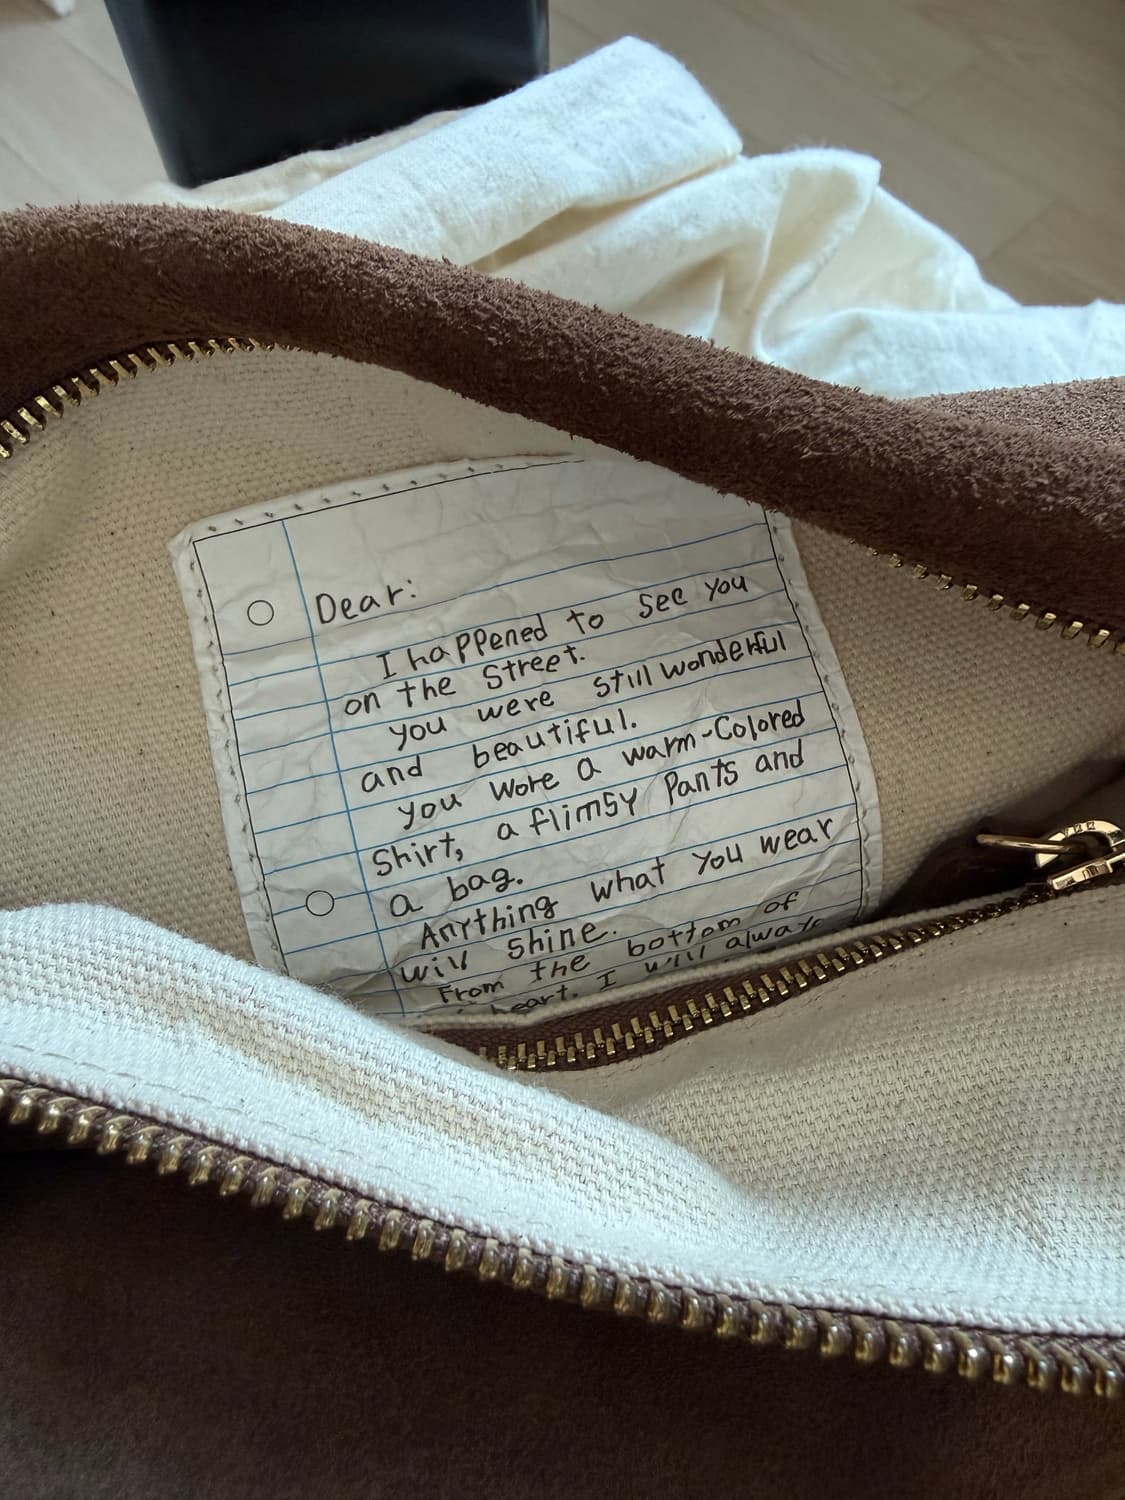 Dear:
I happened to see you
on the street.
you were still wonderful
and beautiful.
you wore a warm-Colored
Shirt, a flimsy Pants and
a bag.
Anything what you wear
will shine.
From the bottom of
heart. I will always